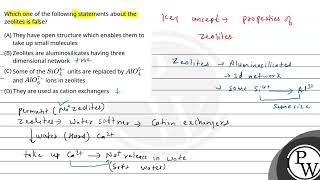 Which one of the following statements about the
zeolites is false?
(A) They have open structure which enables them to
take up small molecules
(B) Zeolites are aluminosilicates having three
dimensional network true
(C) Some of the SiO₄⁴⁻ units are replaced by AlO₄⁵⁻
and ions in zeolites
(D) They are used as cation exchangers
Key concept → properties of
zeolites
Zeolites → Aluminosilicates
→ 3d network
→ some Si⁴⁺ Al³⁺
Same size
permutit (Na⁺ zeolites)
Zeolites → Water softner → Cation exchangers
water (Hard) Ca²⁺
take up Ca²⁺ → Na⁺ release in wate
(Soft water)
PW